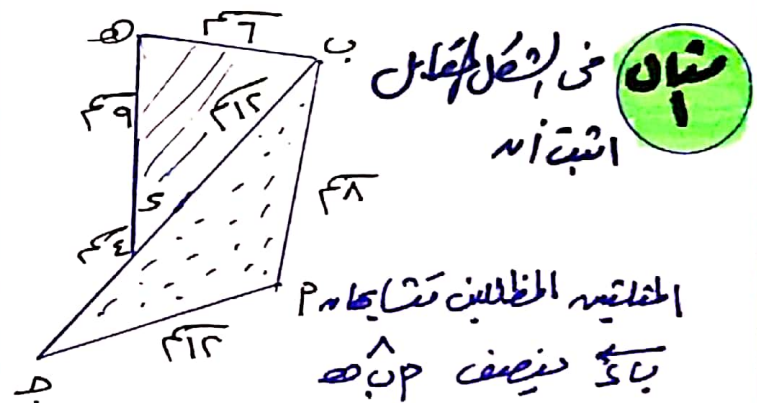 مثال ١
فى الشكل المقابل
اثبت أن
المثلثين المظللين متشابهان
ب٤ ينصف م ب هـ
هـ
٦سم
ب
٩سم
١٢سم
٤
٨سم
٤سم
م
١٢سم
جـ